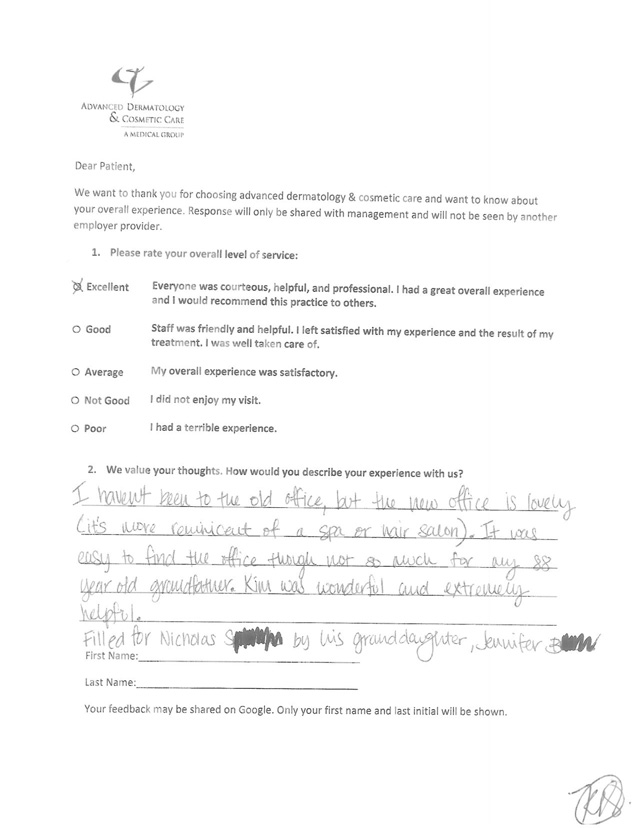 ADVANCED DERMATOLOGY
& COSMETIC CARE
A MEDICAL GROUP
Dear Patient,
We want to thank you for choosing advanced dermatology & cosmetic care and want to know about
your overall experience. Response will only be shared with management and will not be seen by another
employer provider.
1. Please rate your overall level of service:
Excellent Everyone was courteous, helpful, and professional. I had a great overall experience
and I would recommend this practice to others.
Good Staff was friendly and helpful. I left satisfied with my experience and the result of my
treatment. I was well taken care of.
Average My overall experience was satisfactory.
Not Good I did not enjoy my visit.
Poor I had a terrible experience.
2. We value your thoughts. How would you describe your experience with us?
I haven't been to the old office, but the new office is lovely
(it's more reminicent of a spa or hair salon). It was
easy to find the office though not so much for my 88
year old grandfather. Kim was wonderful and extremely
helpful.
Filled for Nicholas S by his granddaughter, Jennifer B
First Name:
Last Name:
Your feedback may be shared on Google. Only your first name and last initial will be shown.